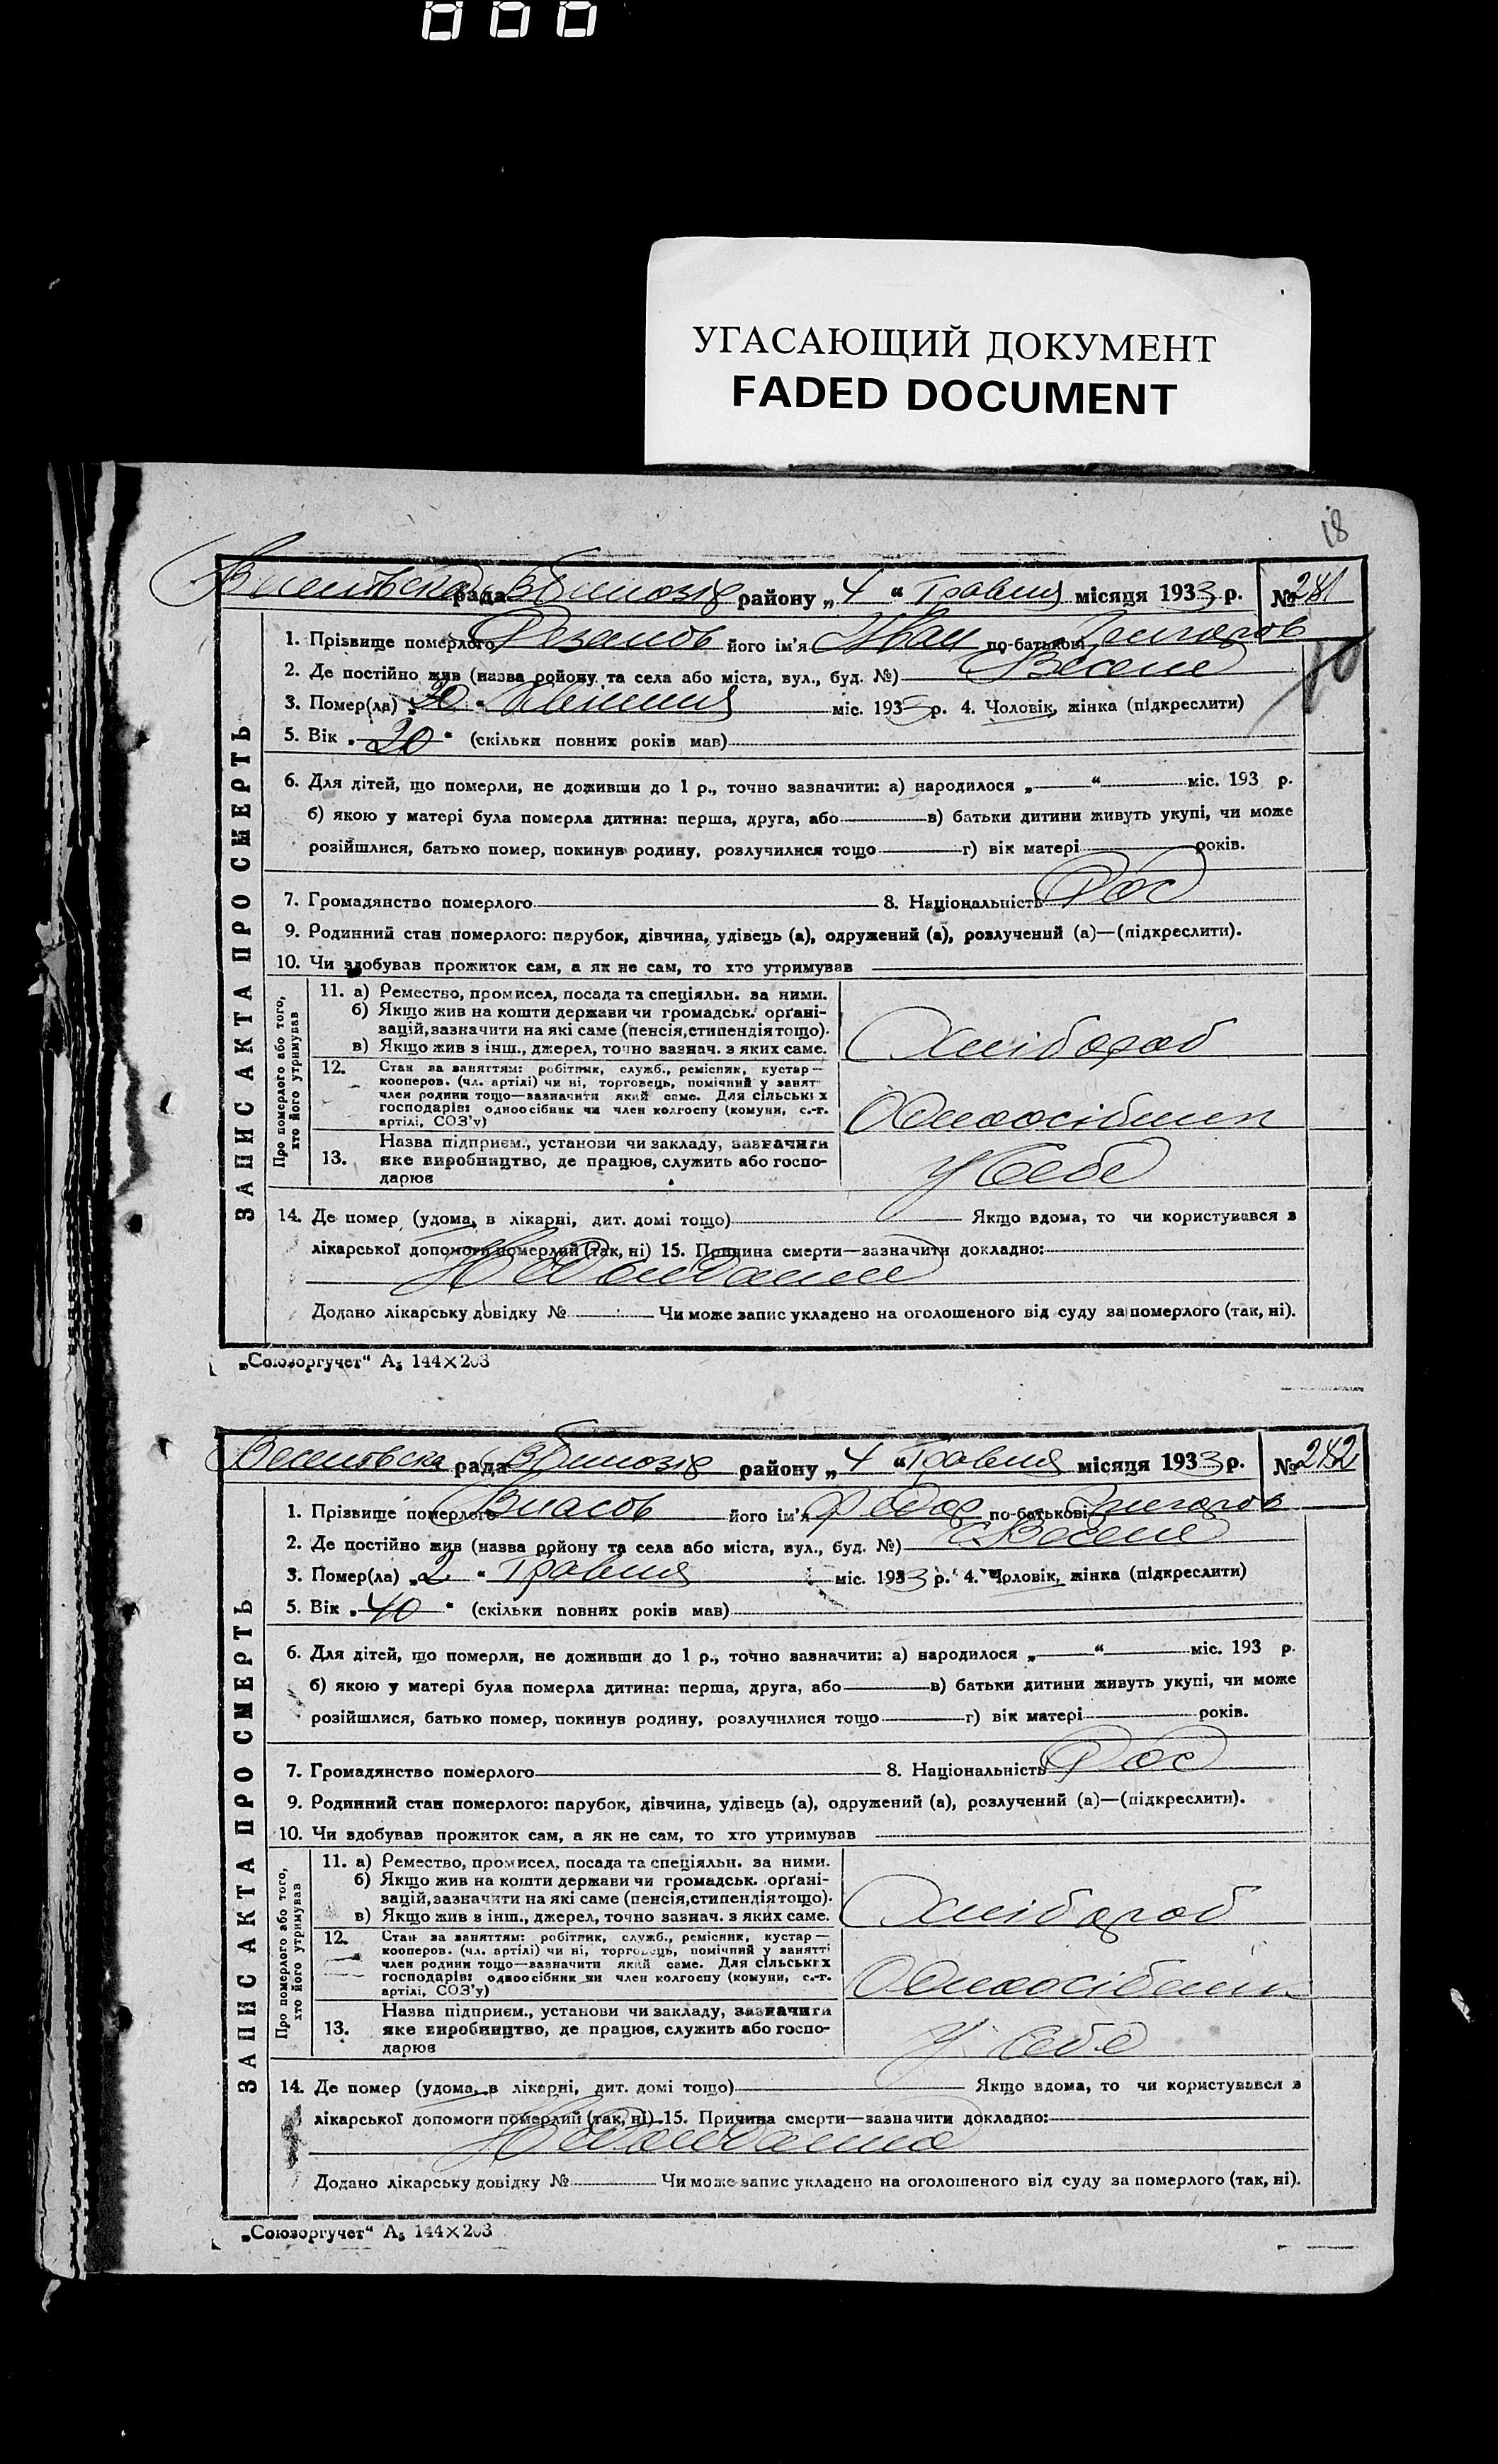 000
УГАСАЮЩИЙ ДОКУМЕНТ
FADED DOCUMENT
18
рада району „4“ Травня місяця 1933 р. № 281
1. Прізвище померлого його ім'я Іван по-батькові Григоров
2. Де постійно жив (назва району та села або міста, вул., буд. №) Веселе
3. Помер(ла) „30“ міс. 1933 р. 4. Чоловік, жінка (підкреслити)
10
5. Вік „20“ (скільки повних років мав)
6. Для дітей, що померли, не доживши до 1 р., точно зазначити: а) народилося „ “ міс. 193 р.
б) якою у матері була померла дитина: перша, друга, або в) батьки дитини живуть укупі, чи може
розійшлися, батько помер, покинув родину, розлучилися тощо г) вік матері років.
7. Громадянство померлого 8. Національність Рос
9. Родинний стан померлого: парубок, дівчина, удівець (а), одружений (а), розлучений (а)—(підкреслити).
10. Чи здобував прожиток сам, а як не сам, то хто утримував
ЗАПИС АКТА ПРО СМЕРТЬ
Про померлого або того,
хто його утримував
11. а) Ремество, промисел, посада та спеціяльн. за ними.
б) Якщо жив на кошти держави чи громадськ. орґані-
зацій, зазначити на які саме (пенсія, стипендія тощо).
в) Якщо жив з інш., джерел, точно зазнач. з яких саме.
Хлібороб
12. Стан за заняттям: робітник, служб., ремісник, кустар—
кооперов. (чл. артілі) чи ні, торговець, помічний у занят
член родини тощо—зазначити який саме. Для сільських
господарів: одноосібник чи член колгоспу (комуни, с.-г.
артілі, СОЗ'у)
Одноосібник
Назва підприєм., установи чи закладу, зазначити
13. яке виробництво, де працює, служить або госпо-
дарює
У себе
14. Де помер (удома, в лікарні, дит. домі тощо) Якщо вдома, то чи користувався з
лікарської допомоги померлий (так, ні) 15. Причина смерти—зазначити докладно:
Додано лікарську довідку № Чи може запис укладено на оголошеного від суду за померлого (так, ні).
„Союзоргучет“ А₅ 144×203
Веселовска рада району „4“ Травня місяця 1933 р. № 282
1. Прізвище померлого Власов його ім'я Федор по-батькові Григоров
2. Де постійно жив (назва району та села або міста, вул., буд. №) с. Веселе
3. Помер(ла) „2“ Травня міс. 1933 р. 4. Чоловік, жінка (підкреслити)
5. Вік „40“ (скільки повних років мав)
6. Для дітей, що померли, не доживши до 1 р., точно зазначити: а) народилося „ “ міс. 193 р.
б) якою у матері була померла дитина: перша, друга, або в) батьки дитини живуть укупі, чи може
розійшлися, батько помер, покинув родину, розлучилися тощо г) вік матері років.
7. Громадянство померлого 8. Національність Рос
9. Родинний стан померлого: парубок, дівчина, удівець (а), одружений (а), розлучений (а)—(підкреслити).
10. Чи здобував прожиток сам, а як не сам, то хто утримував
ЗАПИС АКТА ПРО СМЕРТЬ
Про померлого або того,
хто його утримував
11. а) Ремество, промисел, посада та спеціяльн. за ними.
б) Якщо жив на кошти держави чи громадськ. орґані-
зацій, зазначити на які саме (пенсія, стипендія тощо).
в) Якщо жив в інш., джерел, точно зазнач. з яких саме.
Хлібороб
12. Стан за заняттям: робітник, служб., ремісник, кустар—
кооперов. (чл. артілі) чи ні, торговець, помічний у занятті
член родини тощо—зазначити який саме. Для сільських
господарів: одноосібник чи член колгоспу (комуни, с.-г.
артілі, СОЗ'у)
Одноосібник
Назва підприєм., установи чи закладу, зазначити
13. яке виробництво, де працює, служить або госпо-
дарює
У себе
14. Де помер (удома, в лікарні, дит. домі тощо) Якщо вдома, то чи користувався з
лікарської допомоги померлий (так, ні) 15. Причина смерти—зазначити докладно:
Додано лікарську довідку № Чи може запис укладено на оголошеного від суду за померлого (так, ні).
„Союзоргучет“ А₅ 144×203